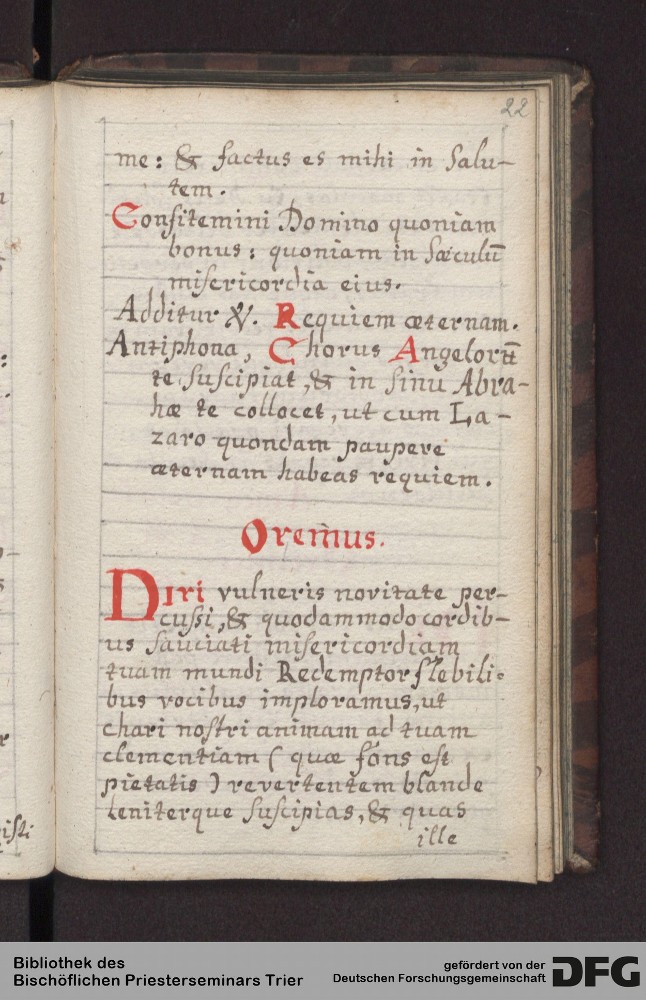 22
me: & factus es mihi in salu-
tem.
Confitemini Domino quoniam
bonus: quoniam in sæculū
misericordia eius.
Additur ℣. Requiem æternam.
Antiphona, Chorus Angelorū
te suscipiat, & in sinu Abra-
hæ te collocet, ut cum La-
zaro quondam paupere
æternam habeas requiem.
Orem̄us.
Diri vulneris novitate per-
cussi, & quodammodo cordib-
us sauciati misericordiam
tuam mundi Redemptor flebili-
bus vocibus imploramus, ut
chari nostri animam ad tuam
clementiam (quæ fons est
pietatis) revertentem blande
leniterque suscipias, & quas
ille
Bibliothek des
Bischöflichen Priesterseminars Trier
gefördert von der
Deutschen Forschungsgemeinschaft
DFG